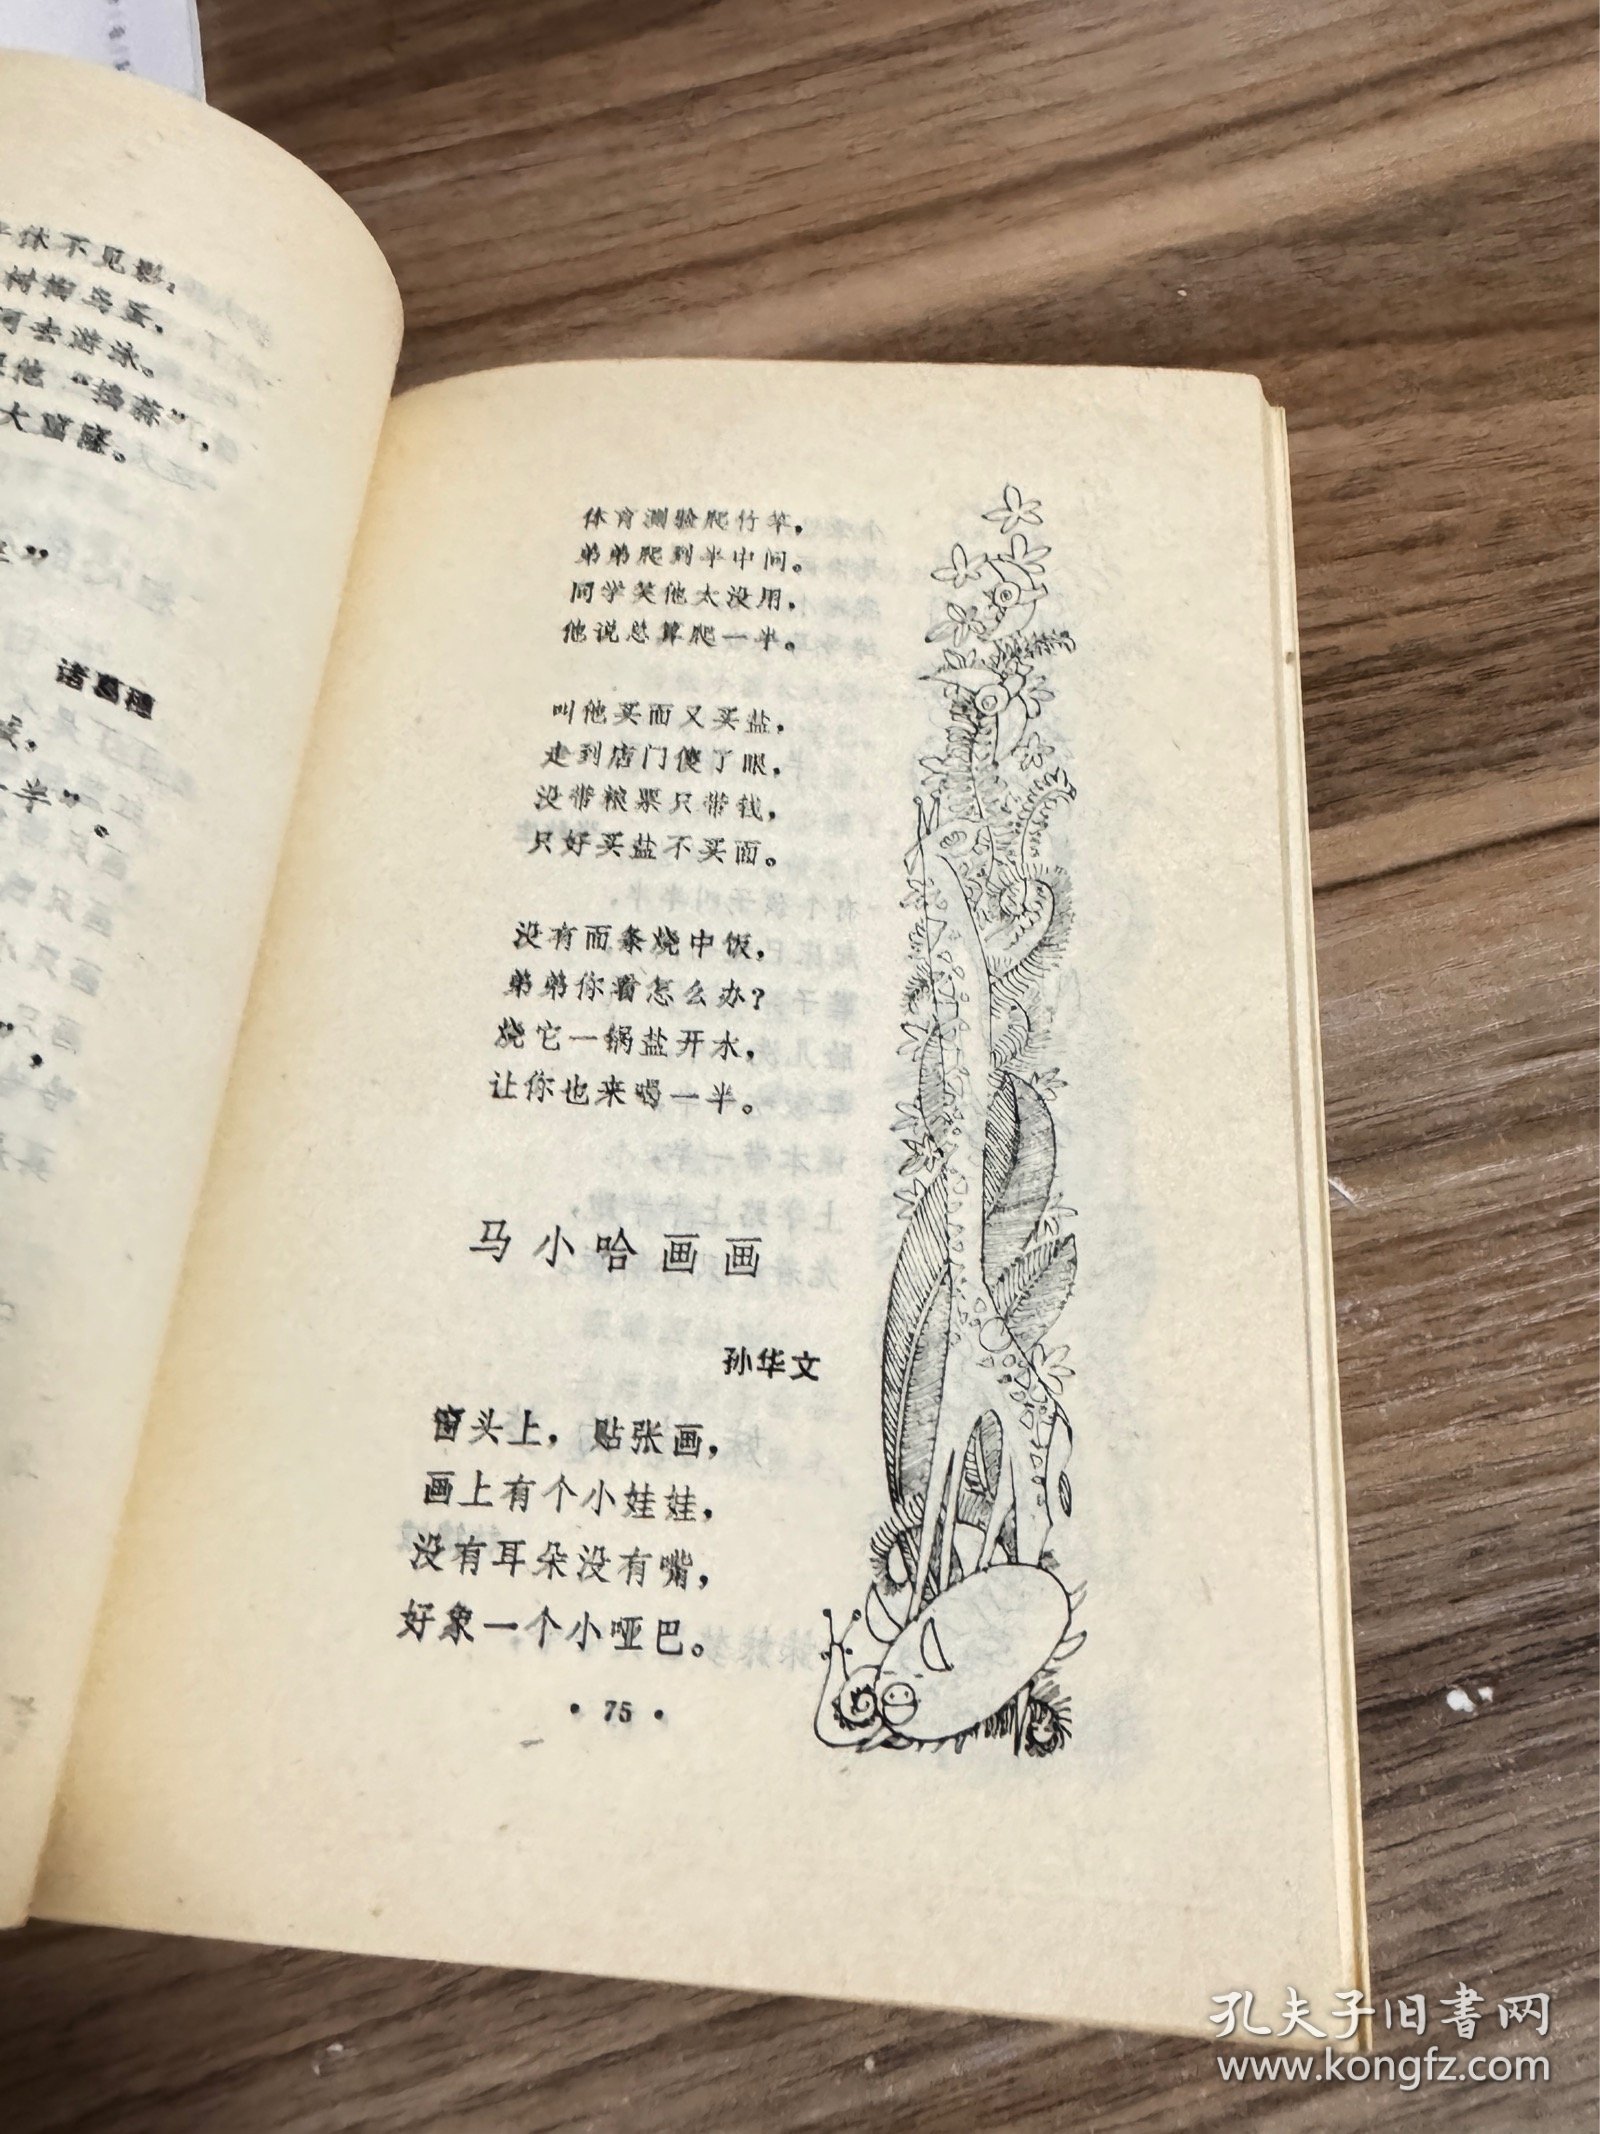 休不见影；
树掏鸟蛋，
河去游泳。
他“捣蒜”，
大窟窿。
”
诸葛穗
一半”。
体育测验爬竹竿，
弟弟爬到半中间。
同学笑他太没用，
他说总算爬一半。
叫他买面又买盐，
走到店门傻了眼，
没带粮票只带钱，
只好买盐不买面。
没有面条烧中饭，
弟弟你看怎么办？
烧它一锅盐开水，
让你也来喝一半。
马小哈画画
孙华文
窗头上，贴张画，
画上有个小娃娃，
没有耳朵没有嘴，
好象一个小哑巴。
• 75 •
孔夫子旧书网
www.kongfz.com